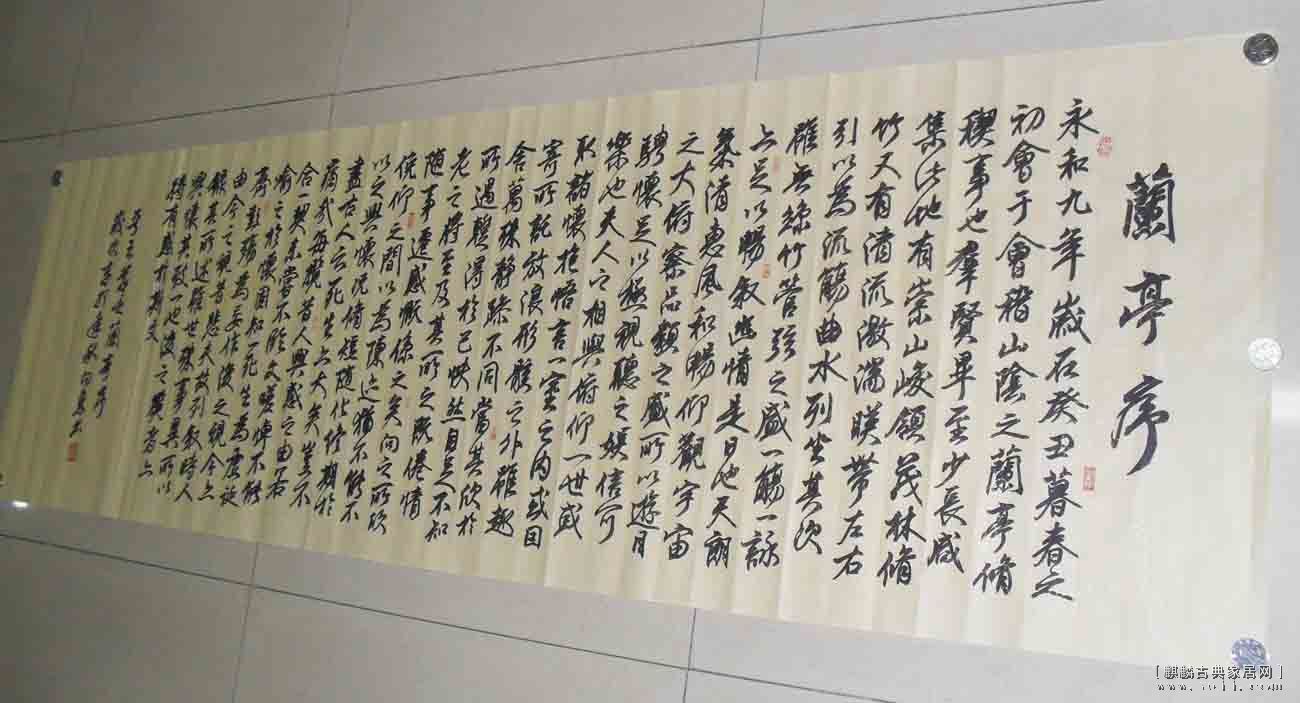 蘭亭序
永和九年歲在癸丑暮春之
初會于會稽山陰之蘭亭脩
禊事也羣賢畢至少長咸
集此地有崇山峻領茂林脩
竹又有清流激湍暎帶左右
引以為流觴曲水列坐其次
雖無絲竹管弦之盛一觴一詠
亦足以暢叙幽情是日也天朗
氣清惠風和暢仰觀宇宙
之大俯察品類之盛所以遊目
騁懷足以極視聽之娛信可
樂也夫人之相與俯仰一世或
取諸懷抱悟言一室之內或因
寄所託放浪形骸之外雖趣
舍萬殊靜躁不同當其欣於
所遇蹔得於己快然自足不知
老之將至及其所之既倦情
隨事遷感慨係之矣向之所欣
俛仰之間以為陳迹猶不能不
以之興懷況脩短隨化終期於
盡古人云死生亦大矣豈不
痛哉每攬昔人興感之由若
合一契未嘗不臨文嗟悼不能
喻之於懷固知一死生為虛誕
齊彭殤為妄作後之視今亦
由今之視昔悲夫故列叙時人
錄其所述雖世殊事異所以
興懷其致一也後之攬者亦
將有感於斯文
蘭亭序
[麒麟古典家居网]